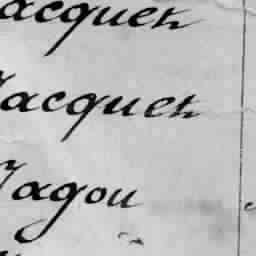 Jacquet
Jacquet
Jagou